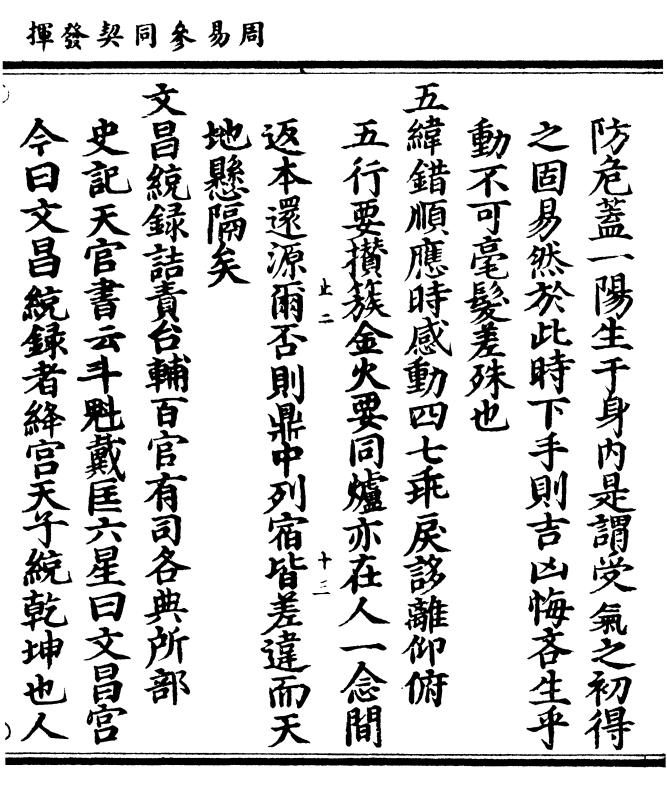 周易參同契發揮
防危蓋一陽生于身內是謂受氣之初得
之固易然於此時下手則吉凶悔吝生乎
動不可毫髮差殊也
五緯錯順應時感動四七乖戾誃離仰俯
五行要攢簇金火要同爐亦在人一念間
返本還源爾否則鼎中列宿皆差違而天
地懸隔矣
止二
十三
文昌統録詰責台輔百官有司各典所部
史記天官書云斗魁戴匡六星曰文昌宮
今曰文昌統録者絳宮天子統乾坤也人